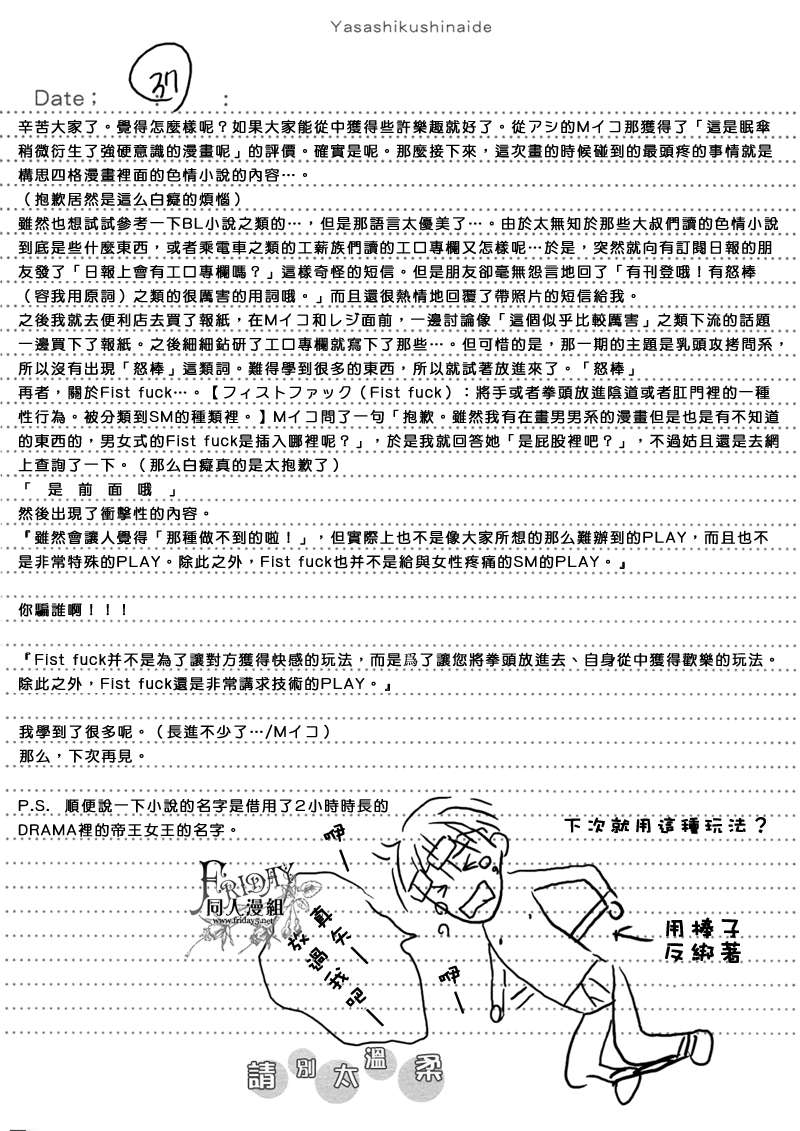 Yasashikushinaide
Date； 37 ：
辛苦大家了。覺得怎麼樣呢？如果大家能從中獲得些許樂趣就好了。從アシ的Mイコ那獲得了「這是眠傘
稍微衍生了強硬意識的漫畫呢」的評價。確實是呢。那麼接下來，這次畫的時候碰到的最頭疼的事情就是
構思四格漫畫裡面的色情小說的內容…。
（抱歉居然是這么白癡的煩惱）
雖然也想試試參考一下BL小說之類的…，但是那語言太優美了…。由於太無知於那些大叔們讀的色情小說
到底是些什麼東西，或者乘電車之類的工薪族們讀的工口專欄又怎樣呢…於是，突然就向有訂閱日報的朋
友發了「日報上會有工口專欄嗎？」這樣奇怪的短信。但是朋友卻毫無怨言地回了「有刊登哦！有怒棒
（容我用原詞）之類的很厲害的用詞哦。」而且還很熱情地回覆了帶照片的短信給我。
之後我就去便利店去買了報紙，在Mイコ和レジ面前，一邊討論像「這個似乎比較厲害」之類下流的話題
一邊買下了報紙。之後細細鉆研了工口專欄就寫下了那些…。但可惜的是，那一期的主題是乳頭攻拷問系，
所以沒有出現「怒棒」這類詞。難得學到很多的東西，所以就試著放進來了。「怒棒」
再者，關於Fist fuck…。【フィストファック（Fist fuck）：將手或者拳頭放進陰道或者肛門裡的一種
性行為。被分類到SM的種類裡。】Mイコ問了一句「抱歉。雖然我有在畫男男系的漫畫但是也是有不知道
的東西的，男女式的Fist fuck是插入哪裡呢？」，於是我就回答她「是屁股裡吧？」，不過姑且還是去網
上查詢了一下。（那么白癡真的是太抱歉了）
「 是 前 面 哦 」
然後出現了衝擊性的內容。
『雖然會讓人覺得「那種做不到的啦！」，但實際上也不是像大家所想的那么難辦到的PLAY，而且也不
是非常特殊的PLAY。除此之外，Fist fuck也并不是給與女性疼痛的SM的PLAY。』
你騙誰啊！！！
『Fist fuck并不是為了讓對方獲得快感的玩法，而是爲了讓您將拳頭放進去、自身從中獲得歡樂的玩法。
除此之外，Fist fuck還是非常講求技術的PLAY。』
我學到了很多呢。（長進不少了…/Mイコ）
那么，下次再見。
P.S. 順便說一下小說的名字是借用了2小時時長的
DRAMA裡的帝王女王的名字。
下次就用這種玩法？
FRIDAY
同人漫組
www.friday5.net
真矢
放過我吧
用棒子
反綁著
請別太溫柔